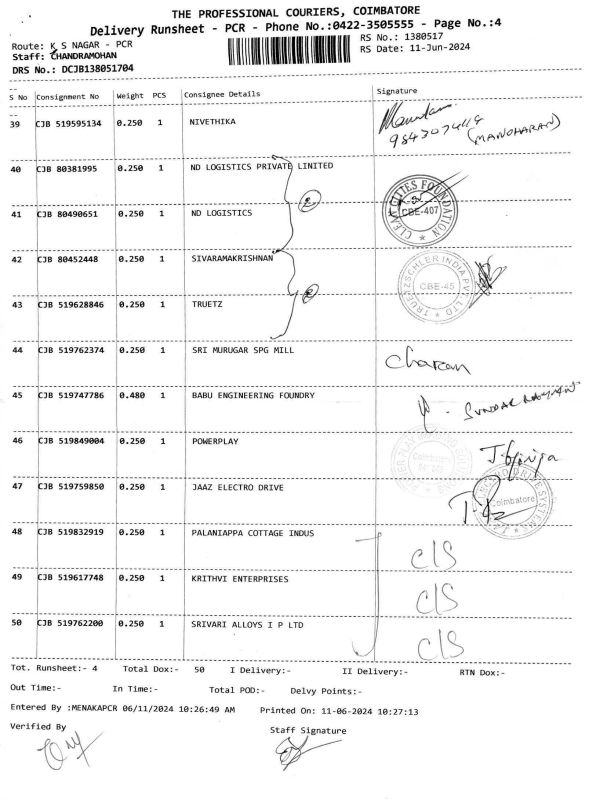 THE PROFESSIONAL COURIERS, COIMBATORE
Delivery Runsheet - PCR - Phone No.:0422-3505555 - Page No.:4
Route: K S NAGAR - PCR
RS No.: 1380517
Staff: CHANDRAMOHAN
RS Date: 11-Jun-2024
DRS No.: DCJB138051704
S No Consignment No Weight PCS Consignee Details Signature
39 CJB 519595134 0.250 1 NIVETHIKA
9843074114
(MANOHARAN)
40 CJB 80381995 0.250 1 ND LOGISTICS PRIVATE LINITED
2
CLEAN CITIES FOUNDATION
CBE-407
41 CJB 80490651 0.250 1 ND LOGISTICS
42 CJB 80452448 0.250 1 SIVARAMAKRISHNAN
2
TRUETZSCHLER INDIA PVT. LTD
CBE-45
43 CJB 519628846 0.250 1 TRUETZ
44 CJB 519762374 0.250 1 SRI MURUGAR SPG MILL
Charan
45 CJB 519747786 0.480 1 BABU ENGINEERING FOUNDRY
46 CJB 519849004 0.250 1 POWERPLAY
47 CJB 519759850 0.250 1 JAAZ ELECTRO DRIVE
Coimbatore
48 CJB 519832919 0.250 1 PALANIAPPA COTTAGE INDUS
C/S
49 CJB 519617748 0.250 1 KRITHVI ENTERPRISES
C/S
50 CJB 519762200 0.250 1 SRIVARI ALLOYS I P LTD
C/S
Tot. Runsheet:- 4 Total Dox:- 50 I Delivery:- II Delivery:- RTN Dox:-
Out Time:- In Time:- Total POD:- Delvy Points:-
Entered By :MENAKAPCR 06/11/2024 10:26:49 AM Printed On: 11-06-2024 10:27:13
Verified By
Staff Signature